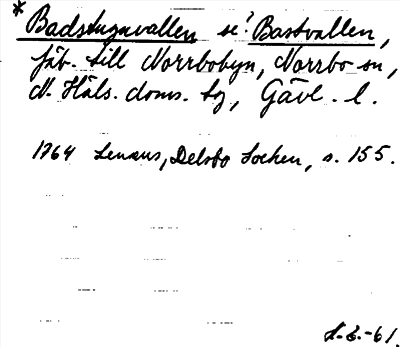 * Badstuguvallen se? Bastvallen,
fäb. till Norrbobyn, Norrbo sn,
N. Häls. doms. sg, Gävl. l.
1764 Lenæus, Delsbo Sochen, s. 155.